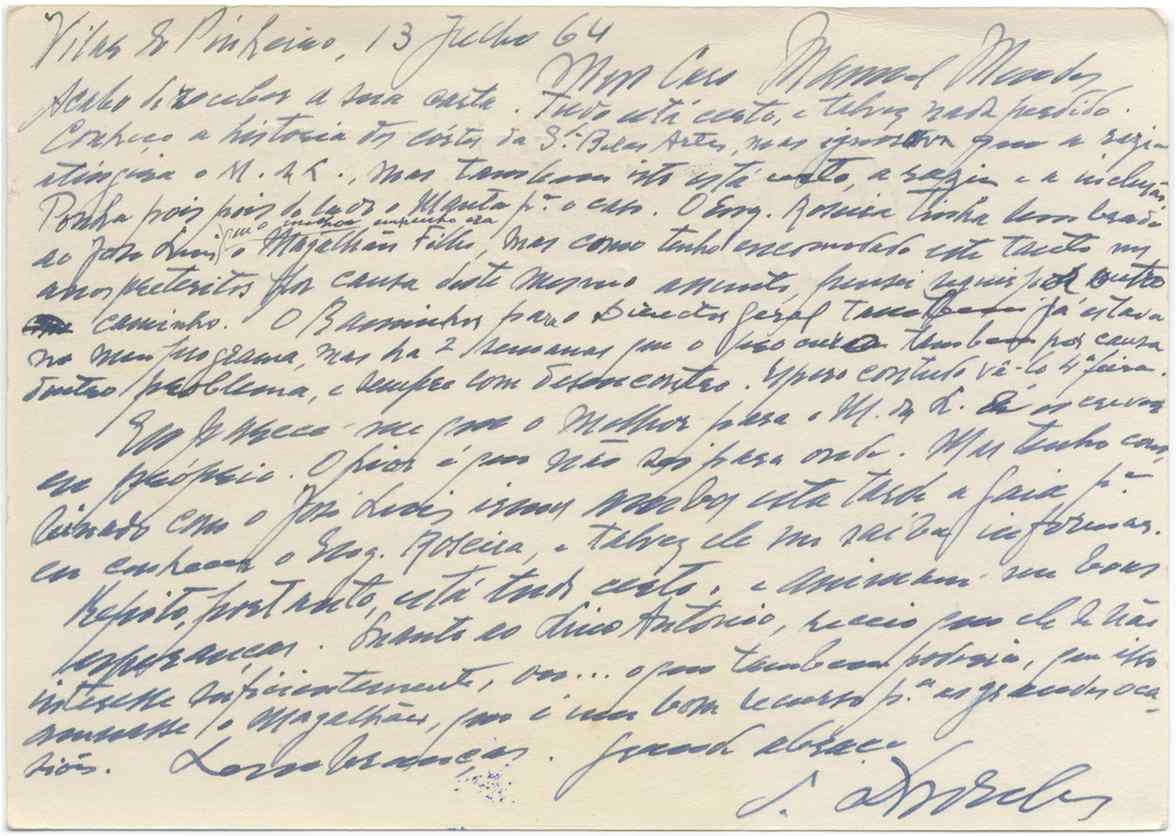 Vilar do Pinheiro, 13 Julho 64
Meu Caro Manuel Mendes
Acabo de receber a sua carta. Tudo está certo, e talvez nada perdido.
Conheço a história dos córtes da S. Belas Artes, mas ignorava que a
atingira o M. de L., mas tambem isto está certo, a e a inclusão
Ponha pois do lado o Manta p.ª o caso. O Eng. Roseira tinha lembrado
ao José Luis, (que o melhor empenho era)
o Magalhães Filho, mas como tenho encomodado este tanto nos
anos preteritos por causa deste mesmo assunto, pensei seguir por outro
caminho. O para o Director Geral tambem já estava
no meu programa, mas ha 2 semanas que o procuro tambem por causa
doutro problema, e sempre com desencontro. Espero contudo vê-lo 4ª feira.
me que o melhor para o M. de L. é escrever
eu próprio. O pior é que não sei para onde. Mas tenho com-
binado com o José Luis irmos ambos esta tarde a Gaia p.ª
eu conhecer o Eng. Roseira, e talvez ele me saiba informar.
Repito, portanto, está tudo certo, e animam-me boas
esperanças. Quanto ao Lino António, receio que ele se não
interesse suficientemente, ou... o que tambem poderia, que isso
o Magalhães, que é um bom recurso p.ª as grandes oca-
siões. Lembranças. Grande abraço